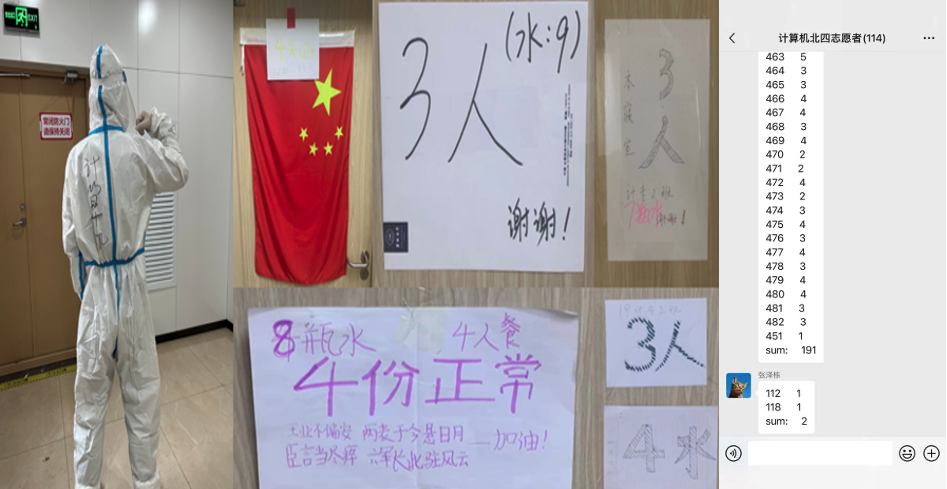 EXIT
常闭防火门
请保持关闭
计算机
3人
(水:9)
谢谢!
本寝室
3人
8瓶水 4人餐
4份正常
王业不偏安 两表于今悬日月
臣言当尽瘁 六军长此驻风云
——加油!
3人
4水
计算机北四志愿者(114)
463 5
464 3
465 3
466 4
467 4
468 3
469 4
470 2
471 2
472 4
473 2
474 3
475 4
476 3
477 4
478 3
479 4
480 4
481 3
482 3
451 1
sum: 191
张泽栋
112 1
118 1
sum: 2